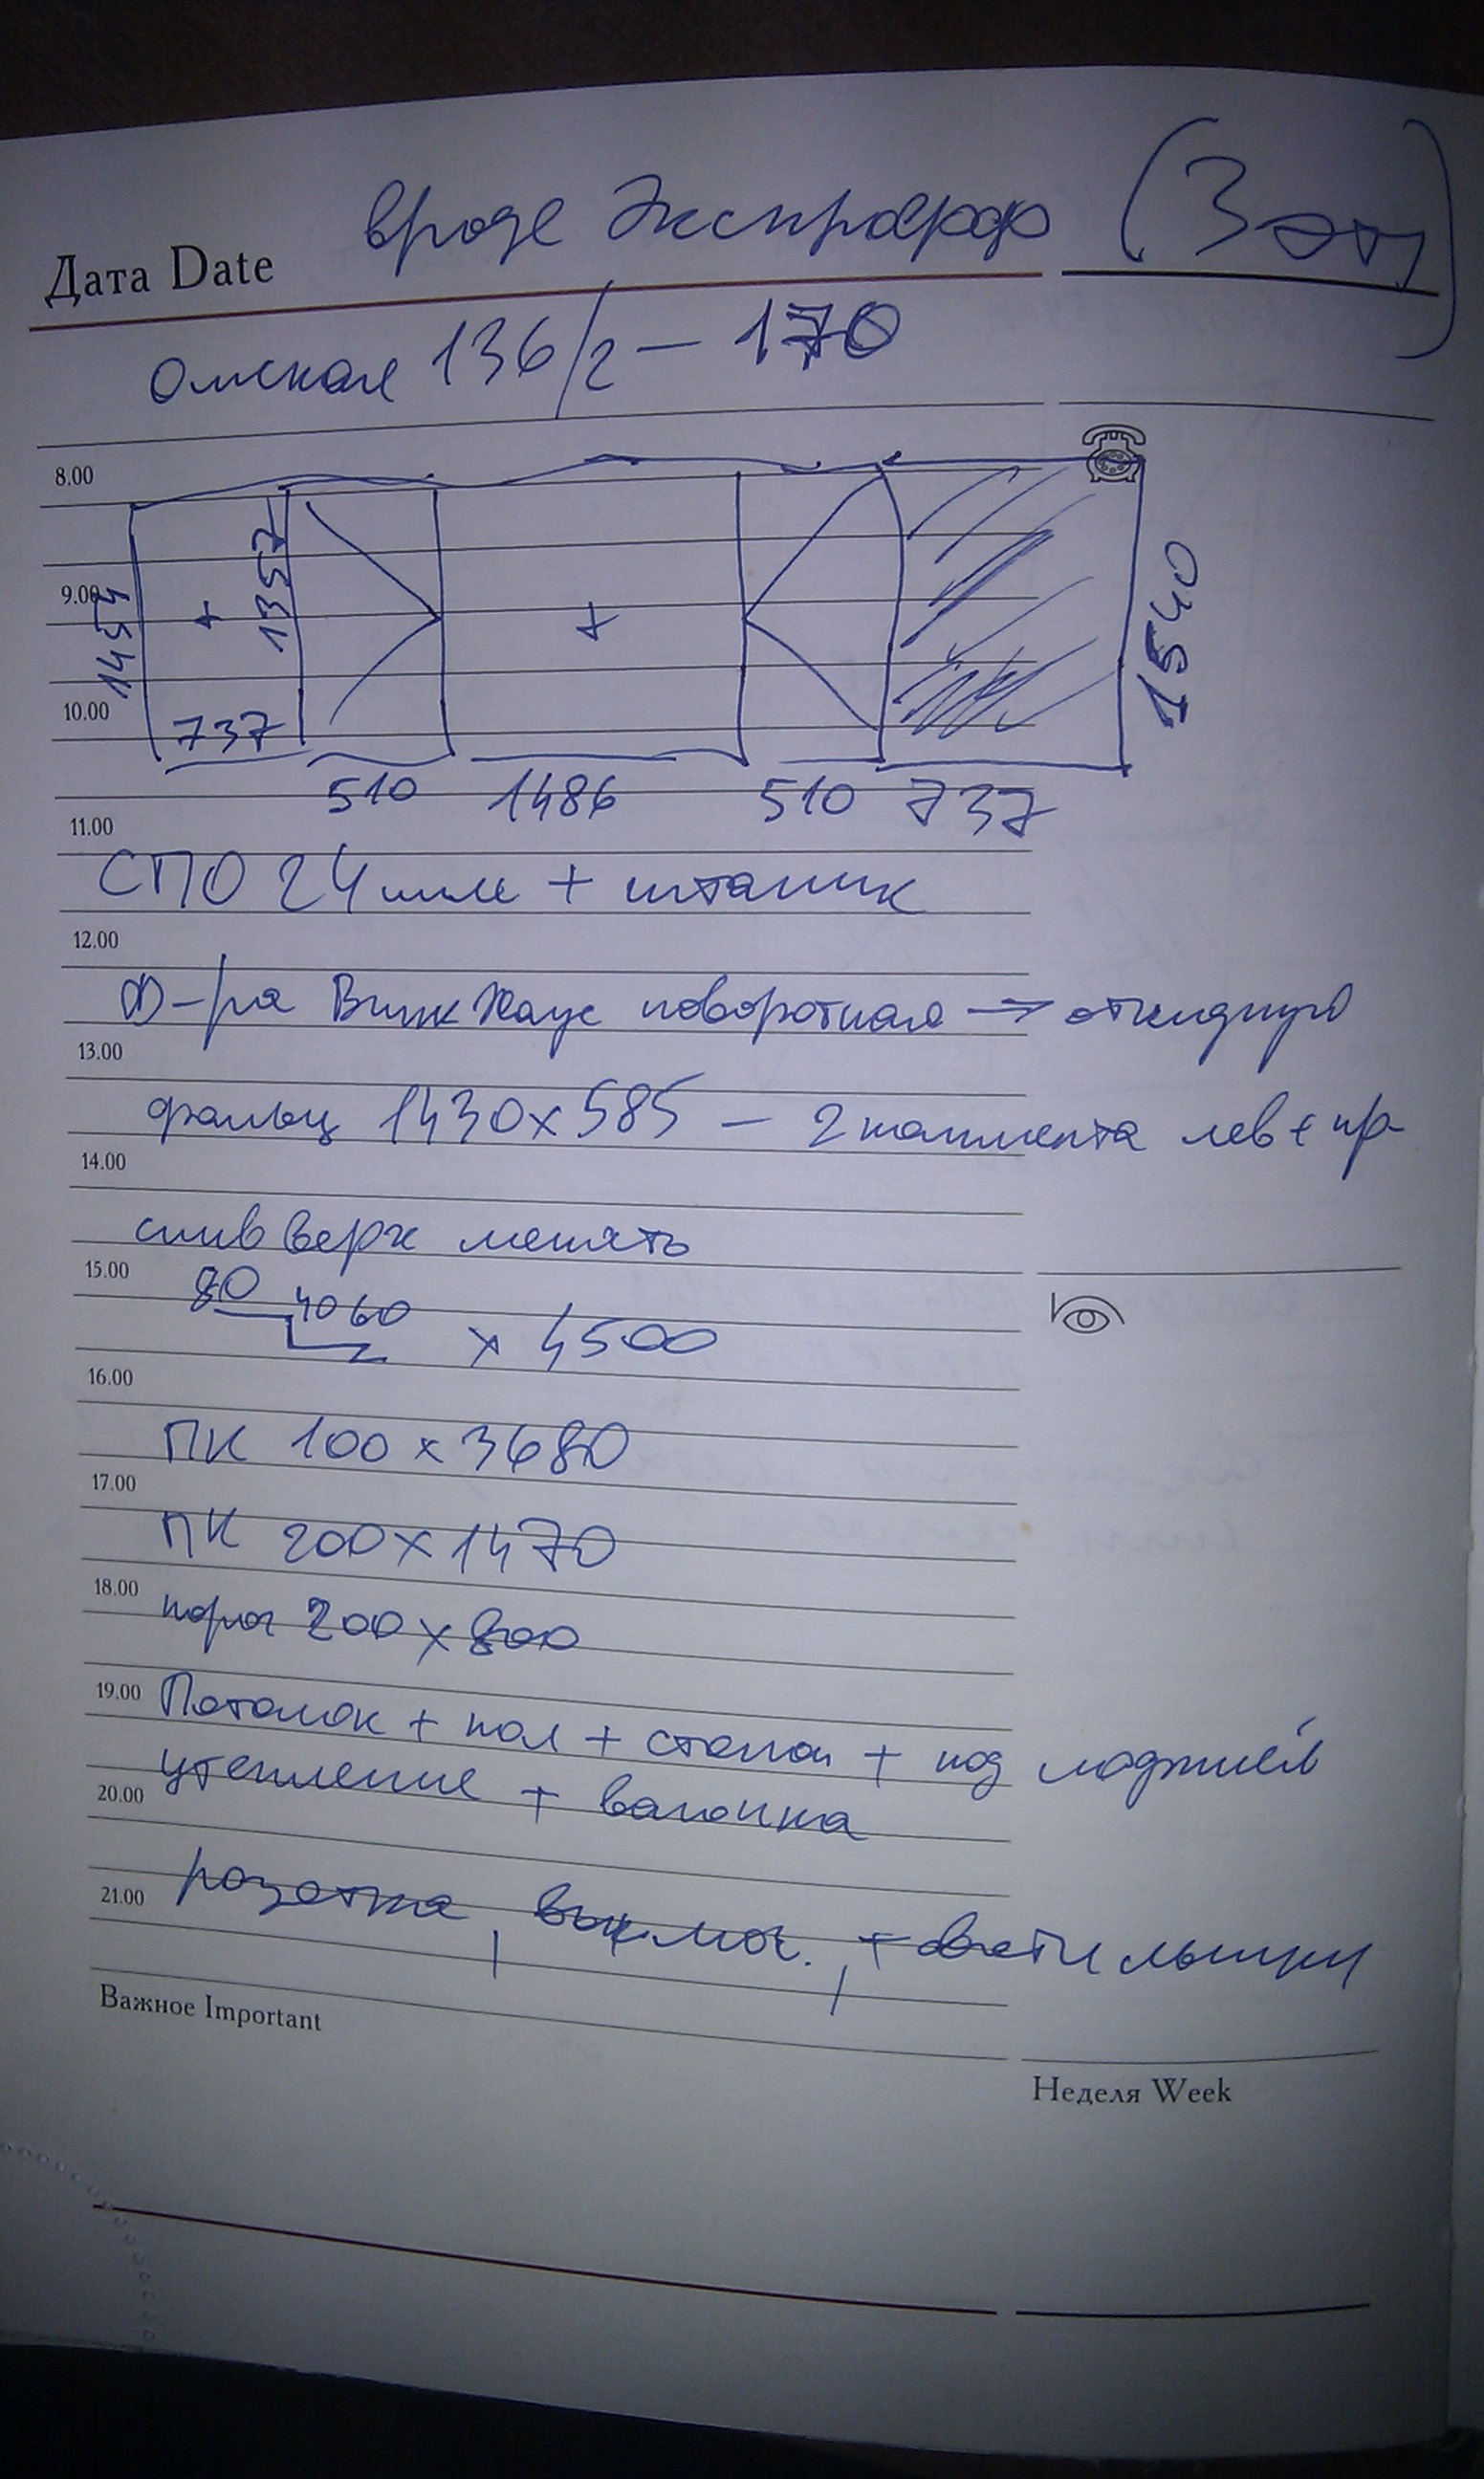 вроде Экспроф (3 эт)
Дата Date
Омская 136/2 – 170
8.00
9.00
10.00
1454
+
1352
+
1540
737
510 1486 510 737
11.00
СПО 24 мм + штапик
12.00
Ф-ра ВинкХаус поворотная → откидную
13.00
фальц 1430х585 – 2 комплекта лев + пр
14.00
слив верх менять
15.00
80 40 60 х 4500
16.00
ПК 100 х 3680
17.00
ПК 200 х 1470
18.00
порог 200 х 800
19.00
Потолок + пол + стена + под лоджией
утепление + вагонка
20.00
розетка, выключ., + светильники
21.00
Важное Important
Неделя Week